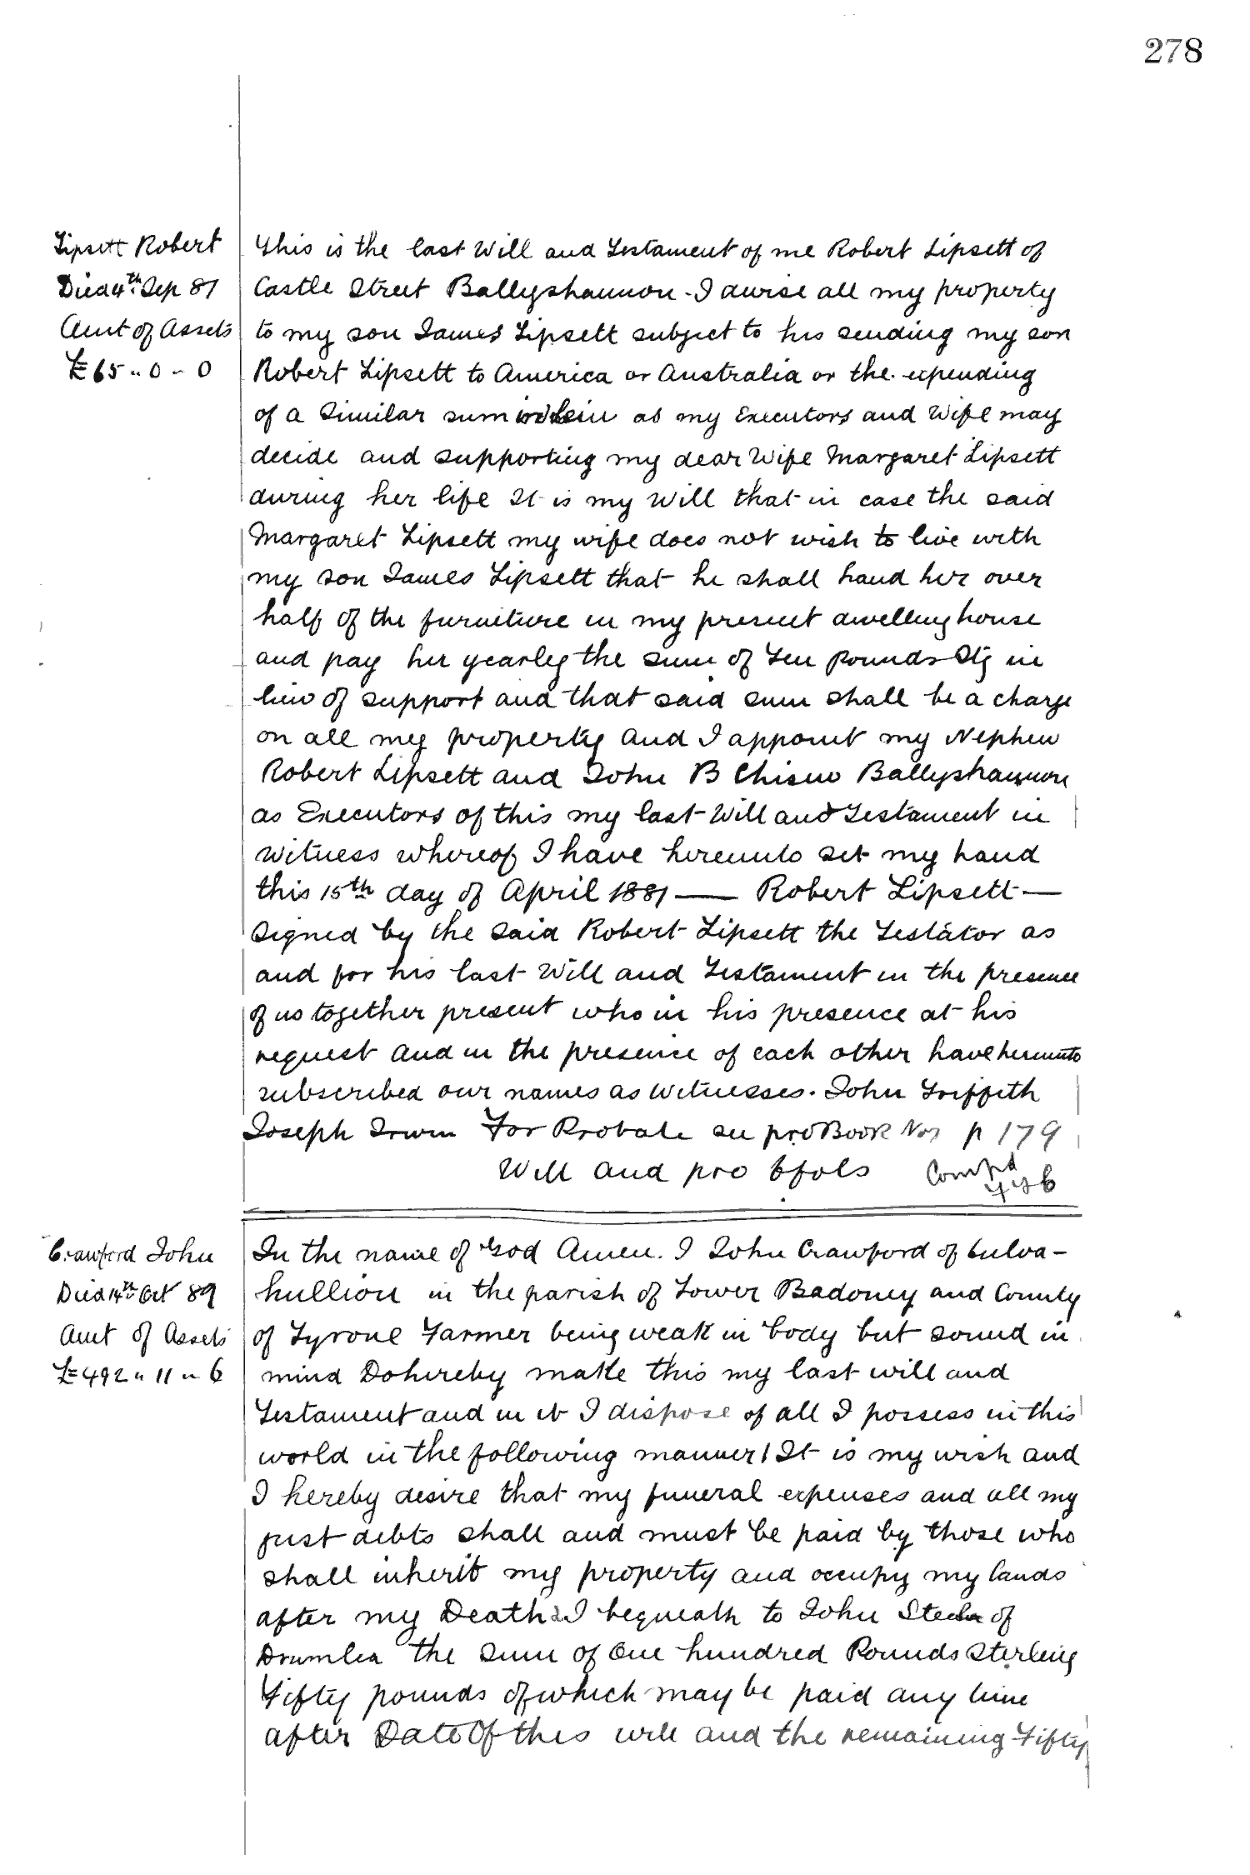 278
Lipsett Robert
Died 4th Sep 81
Amt of Assets
£65 " 0 - 0
This is the last Will and Testament of me Robert Lipsett of
Castle Street Ballyshannon - I devise all my property
to my son James Lipsett subject to his sending my son
Robert Lipsett to America or Australia or the expending
of a Similar sum in lieu as my Executors and Wife may
decide and supporting my dear Wife Margaret Lipsett
during her life It is my Will that in case the said
Margaret Lipsett my wife does not wish to live with
my son James Lipsett that he shall hand her over
half of the furniture in my present dwelling house
and pay her yearly the sum of Ten pounds Stg in
lieu of support and that said sum shall be a charge
on all my property and I appoint my Nephew
Robert Lipsett and John B Ballyshannon
as Executors of this my last Will and Testament in
Witness whereof I have hereunto set my hand
this 15th day of April 1881 — Robert Lipsett —
Signed by the said Robert Lipsett the Testator as
and for his last Will and Testament in the presence
of us together present who in his presence at his
request and in the presence of each other have hereunto
subscribed our names as Witnesses. John Griffith
Joseph Irwin For Probate see pro Book No 1 p 179
Will and pro 6 fols Compd
Crawford John
Died 14th Oct 89
Amt of Assets
£492 " 11 " 6
In the name of God Amen. I John Crawford of Culva-
hullion in the parish of Lower Badoney and County
of Tyrone Farmer being weak in body but sound in
mind Do hereby make this my last will and
Testament and in it I dispose of all I possess in this
world in the following manner 1 It is my wish and
I hereby desire that my funeral expenses and all my
just debts shall and must be paid by those who
shall inherit my property and occupy my lands
after my Death 2 I bequeath to John of
Drumlea the Sum of One hundred Pounds Sterling
Fifty pounds of which may be paid any time
after Date Of this will and the remaining Fifty